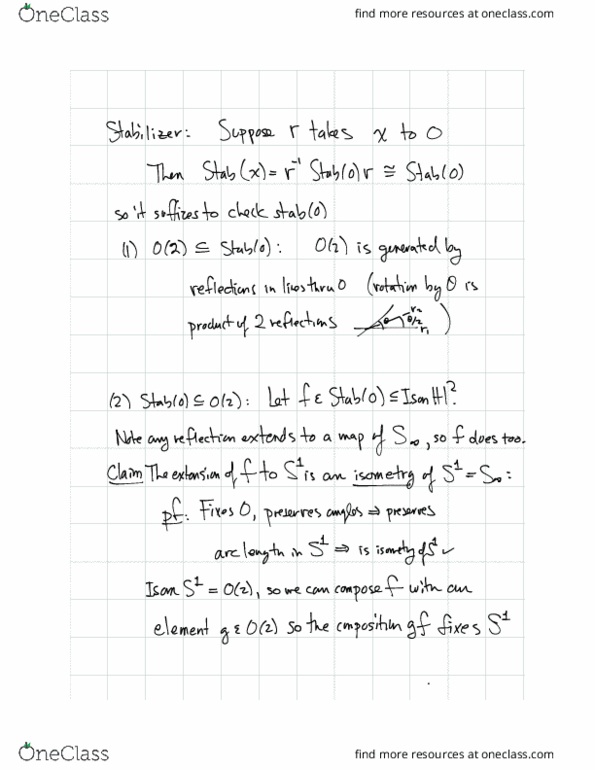 OneClass
find more resources at oneclass.com
Stabilizer: Suppose r takes x to 0
Then Stab(x) = r⁻¹ Stab(0) r ≅ Stab(0)
so it suffices to check stab(0)
(1) O(2) ⊆ Stab(0): O(2) is generated by
reflections in lines thru 0 (rotation by θ is
product of 2 reflections θ θ/2 r₂ r₁ )
(2) Stab(0) ⊆ O(2): Let f ε Stab(0) ≤ Isom H².
Note any reflection extends to a map of S∞, so f does too.
Claim The extension of f to S¹ is an isometry of S¹ = S∞:
pf: Fixes 0, preserves angles ⇒ preserves
arc length in S¹ ⇒ is isometry of S¹ ✓
Isom S¹ = O(2), so we can compose f with an
element g ε O(2) so the composition gf fixes S¹
OneClass
find more resources at oneclass.com